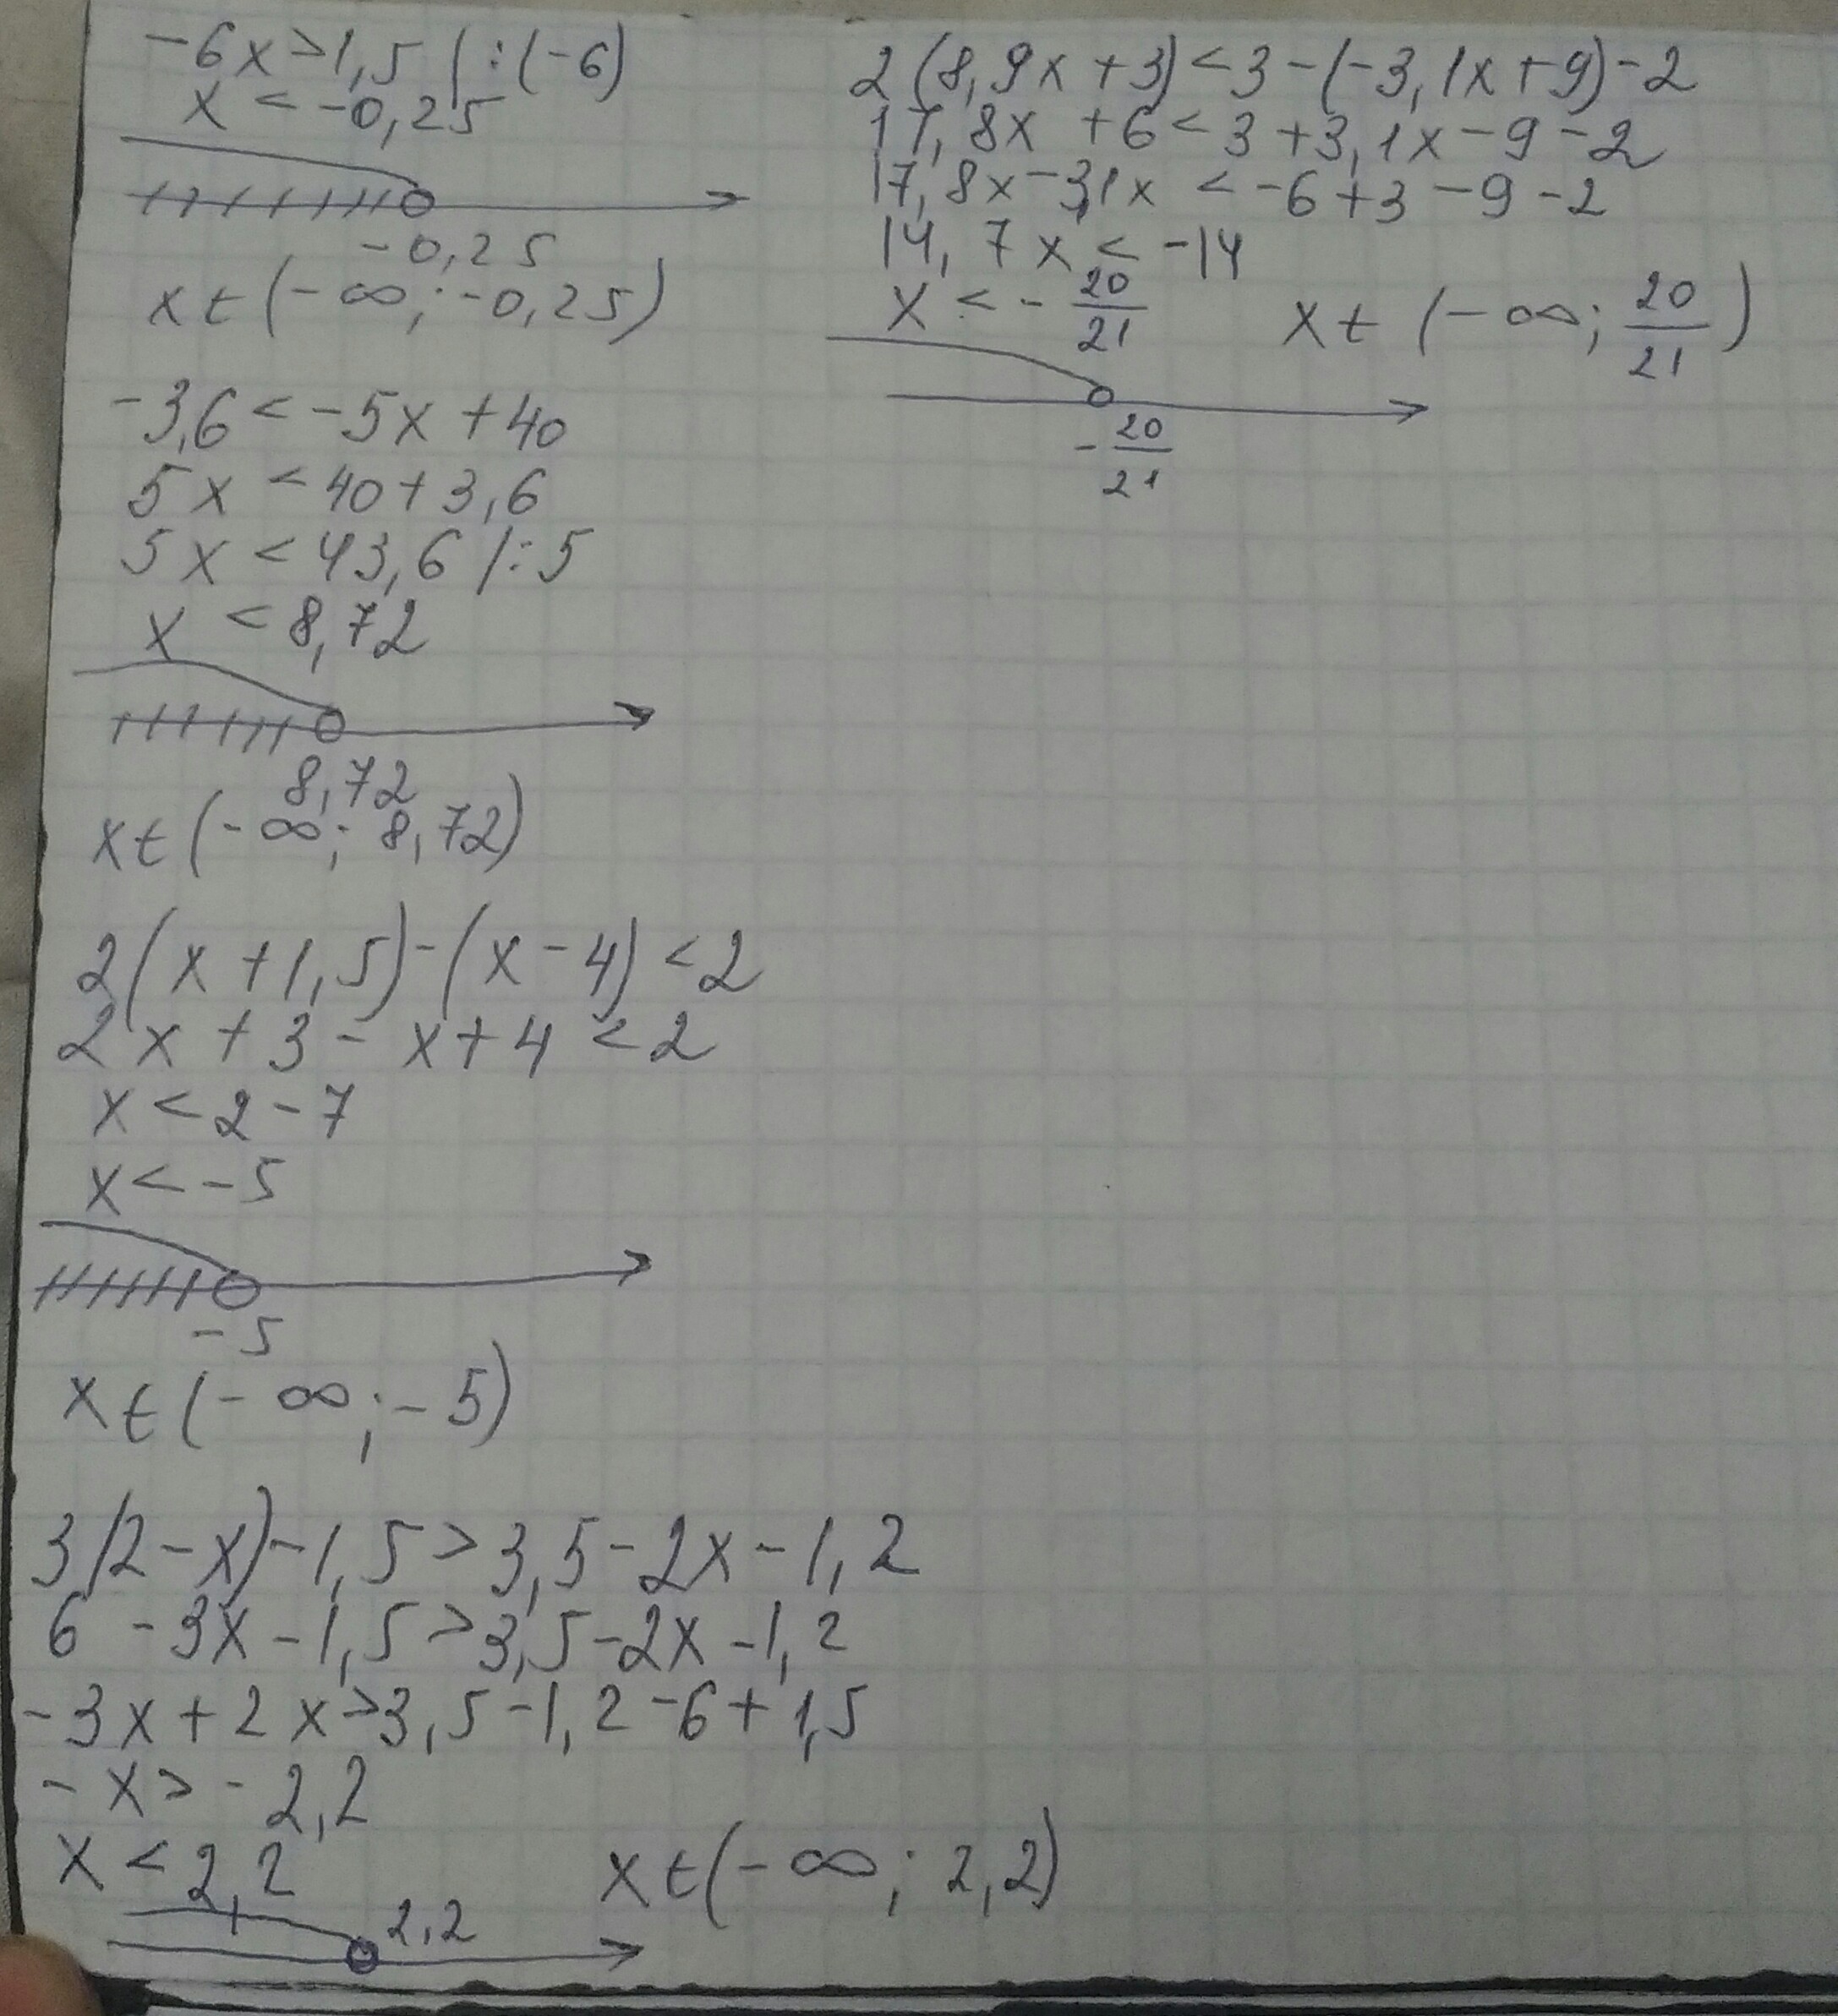 -6x>1,5 |:(-6)
x < -0,25
-0,25
x∈(-∞;-0,25)
-3,6 < -5x + 40
5x < 40 + 3,6
5x < 43,6 |:5
x < 8,72
8,72
x∈(-∞; 8,72)
2(x+1,5)-(x-4)<2
2x + 3 - x + 4 < 2
x < 2 - 7
x < -5
-5
x∈(-∞;-5)
3(2-x)-1,5>3,5-2x-1,2
6 -3x-1,5>3,5-2x-1,2
-3x+2x>3,5-1,2-6+1,5
-x > -2,2
x < 2,2 x∈(-∞; 2,2)
2,2
2(8,9x+3)<3-(-3,1x+9)-2
17,8x +6<3+3,1x-9-2
17,8x-3,1x < -6+3-9-2
14,7x < -14
x < - 20/21 x∈(-∞; 20/21)
- 20/21